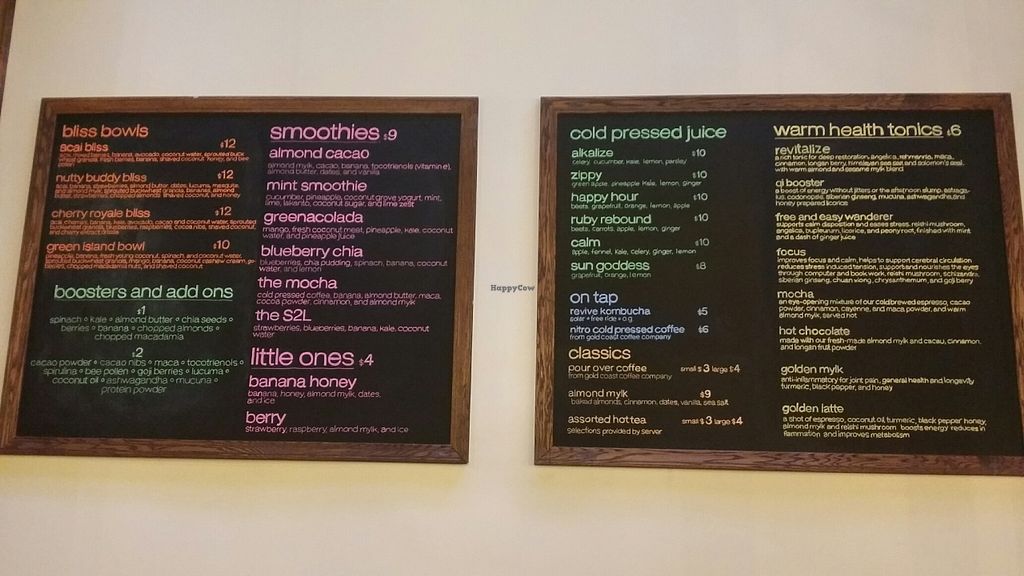 bliss bowls
acai bliss $12
acai, mixed berries, banana, avocado, coconut water, sprouted buck
wheat granola, fresh berries, banana, shaved coconut, honey, and bee
pollen
nutty buddy bliss $12
acai, banana, strawberries, almond butter, dates, lucuma, mesquite,
and almond mylk, sprouted buckwheat granola, bananas, almond
butter, strawberries, shaved coconut, and honey
cherry royale bliss $12
acai, cherries, banana, kale, avocado, cacao and coconut water, sprouted
buckwheat granola, blueberries, raspberries, cocoa nibs, shaved coconut,
and cherry
green island bowl $10
pineapple, banana, fresh young coconut, spinach, and coconut water,
sprouted buckwheat granola, mango, banana, coconut cashew cream, go-
ji berries, chopped macadamia nuts, and shaved coconut
boosters and add ons
$1
spinach • kale • almond butter • chia seeds •
berries • banana • chopped almonds •
chopped macadamia
$2
cacao powder • cacao nibs • maca • tocotrienols •
spirulina • bee pollen • goji berries • lucuma •
coconut oil • ashwagandha • mucuna •
protein powder
smoothies $9
almond cacao
almond mylk, cacao, banana, tocotrienole (vitamin e),
almond butter, dates, and vanilla
mint smoothie
cucumber, pineapple, coconut grove yogurt, mint,
lime, lakanto, coconut sugar, and lime zest
greenacolada
mango, fresh coconut meat, pineapple, kale, coconut
water, and pineapple juice
blueberry chia
blueberries, chia pudding, spinach, banana, coconut
water, and lemon
the mocha
cold pressed coffee, banana, almond butter, maca,
cocoa powder, cinnamon, and almond mylk
the S2L
strawberries, blueberries, banana, kale, coconut
water
little ones $4
banana honey
banana, honey, almond mylk, dates,
and ice
berry
strawberry, raspberry, almond mylk, and ice
HappyCow
cold pressed juice
alkalize $10
celery, cucumber, kale, lemon, parsley
zippy $10
green apple, pineapple, kale, lemon, ginger
happy hour $10
beets, grapefruit, orange, lemon, apple
ruby rebound $10
beets, carrots, apple, lemon, ginger
calm $10
apple, fennel, kale, celery, ginger, lemon
sun goddess $8
grapefruit, orange, lemon
on tap
revive kombucha $5
solar • free ride • o.g
nitro cold pressed coffee $6
from gold coast coffee company
classics
pour over coffee small $3 large $4
from gold coast coffee company
almond mylk $9
baked almonds, cinnamon, dates, vanilla, sea salt
assorted hot tea small $3 large $4
selections provided by server
warm health tonics $6
revitalize
a rich tonic for deep restoration, angelica, rehmannia, maca,
cinnamon, longan berry, himalayan sea salt and solomon's seal,
with warm almond and sesame mylk blend
qi booster
a boost of energy without jitters or the afternoon slump. astaga-
lus, codonopsis, siberian ginseng, mucuna, ashwaghandha, and
honey prepared licorice
free and easy wanderer
supports calm disposition and eases stress. reishi mushroom,
angelica, bupleurum, licorice, and peony root, finished with mint
and a dash of ginger juice
focus
improves focus and calm, helps to support cerebral circulation
reduces stress induced tension, support and nourishes the eyes
through computer and book work, reishi mushroom, schizandra,
siberian ginseng, chuan xiong, chrysanthemum, and goji berry
mocha
an eye-opening mixture of our coldbrewed espresso, cacao
powder, cinnamon, cayenne, and maca powder, and warm
almond mylk, served hot
hot chocolate
made with our fresh-made almond mylk and cacao, cinnamon,
and longan fruit powder
golden mylk
anti-inflammatory for joint pain, general health and longevity
turmeric, black pepper, and honey
golden latte
a shot of espresso, coconut oil, turmeric, black pepper honey,
almond mylk and reishi mushroom boosts energy reduces in
flammation and improves metabolism